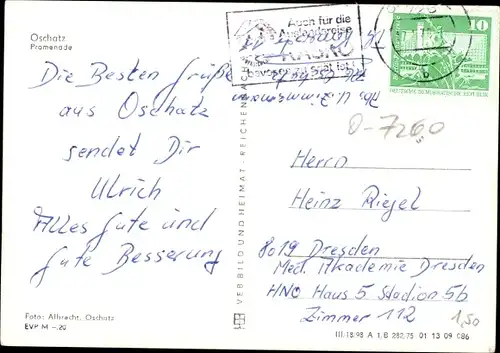 Oschatz
Promenade
Die Besten Grüße
aus Oschatz
sendet Dir
Ulrich
Alles Gute und
Gute Besserung
Foto: Albrecht, Oschatz
EVP M –,20
VEB BILD UND HEIMAT · REICHENBACH
Auch für die
10
O-7260
Herrn
Heinz Riegel
8019 Dresden
Med. Akademie Dresden
HNO Haus 5 Stadion 5b
Zimmer 112
1,50
III-18-98 A 1, B 282/75 01 13 09 086